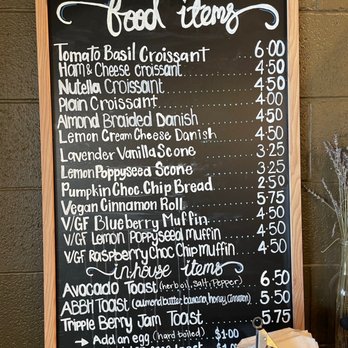 food items
Tomato Basil Croissant 6.00
Ham & Cheese croissant 4.50
Nutella Croissant 4.50
Plain Croissant 4.00
Almond Braided Danish 4.50
Lemon Cream Cheese Danish 4.50
Lavender Vanilla Scone 3.25
Lemon Poppyseed Scone 3.25
Pumpkin Choc. Chip Bread 2.50
Vegan Cinnamon Roll 5.75
V/GF Blueberry Muffin 4.50
V/GF Lemon Poppyseed muffin 4.50
V/GF Raspberry Choc Chip muffin 4.50
inhouse items
Avocado Toast (herb oil, salt, Pepper) 6.50
ABBH Toast (almond butter, banana, honey, Cinnamon) 5.50
Tripple Berry Jam Toast 5.75
→ Add an egg (hard boiled) $1.00